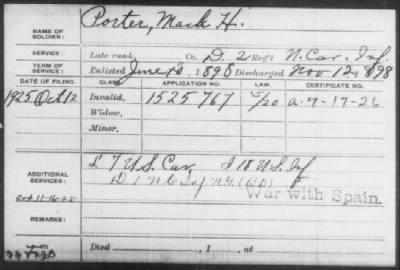 NAME OF SOLDIER: Porter, Mack H.
SERVICE: Late rank, Co. D. 2 Reg't N. Car. Inf.
TERM OF SERVICE: Enlisted June 1898 Discharged Nov 12, 1898
DATE OF FILING. CLASS. APPLICATION NO. LAW. CERTIFICATE NO.
1925 Oct 12 Invalid, 1525767 a-7-17-26
Widow,
Minor,
ADDITIONAL SERVICES: L 7 U.S. Cav. I 18 U.S. Inf
D 1 N C Inf N.G.
War with Spain.
REMARKS:
Died , 1 , at